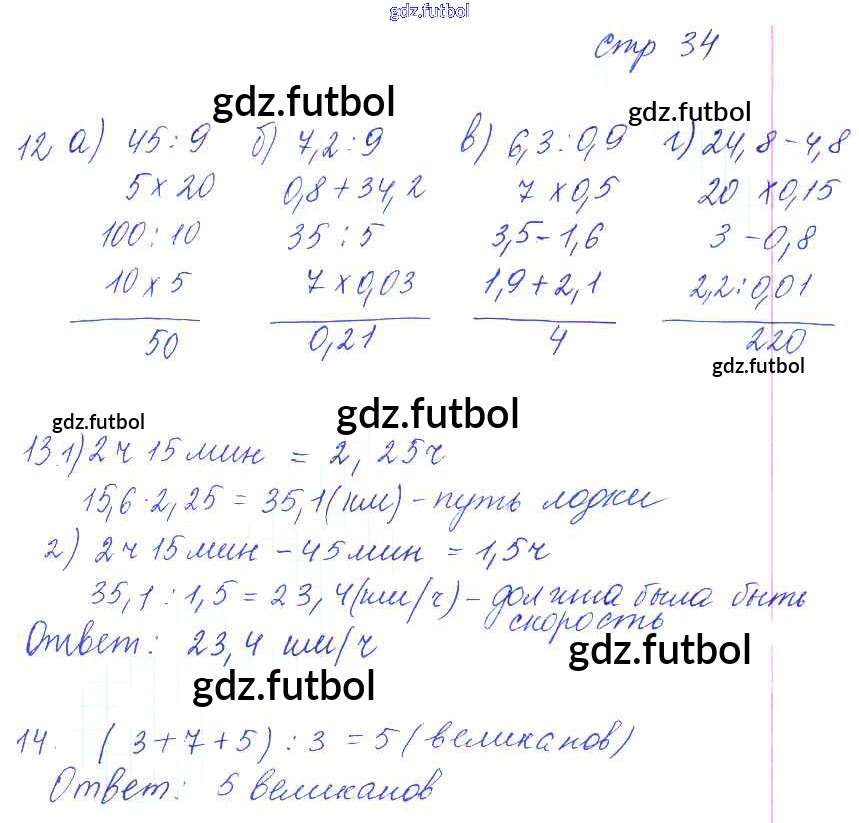 gdz.futbol
стр 34
gdz.futbol
gdz.futbol
12 а) 45:9 б) 7,2:9 в) 6,3:0,9 г) 24,8-4,8
5 x 20 0,8+34,2 7 x 0,5 20 x 0,15
100:10 35:5 3,5-1,6 3-0,8
10 x 5 7 x 0,03 1,9+2,1 2,2:0,01
50 0,21 4 220
gdz.futbol
gdz.futbol
gdz.futbol
13.1) 2ч 15мин = 2,25ч
15,6·2,25 = 35,1(км) - путь лодки
2) 2ч 15мин - 45мин = 1,5ч
35,1 : 1,5 = 23,4(км/ч) - должна была быть
скорость
Ответ: 23,4 км/ч
gdz.futbol
gdz.futbol
14. (3+7+5) : 3 = 5 (великанов)
Ответ: 5 великанов